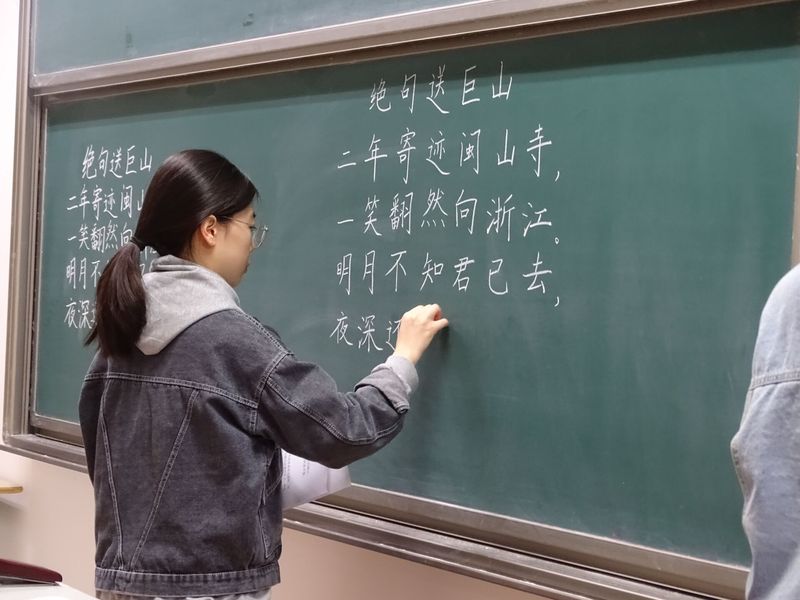 绝句送巨山
二年寄迹闽
一笑翻然向
明月不
夜深
绝句送巨山
二年寄迹闽山寺,
一笑翻然向浙江。
明月不知君已去,
夜深还